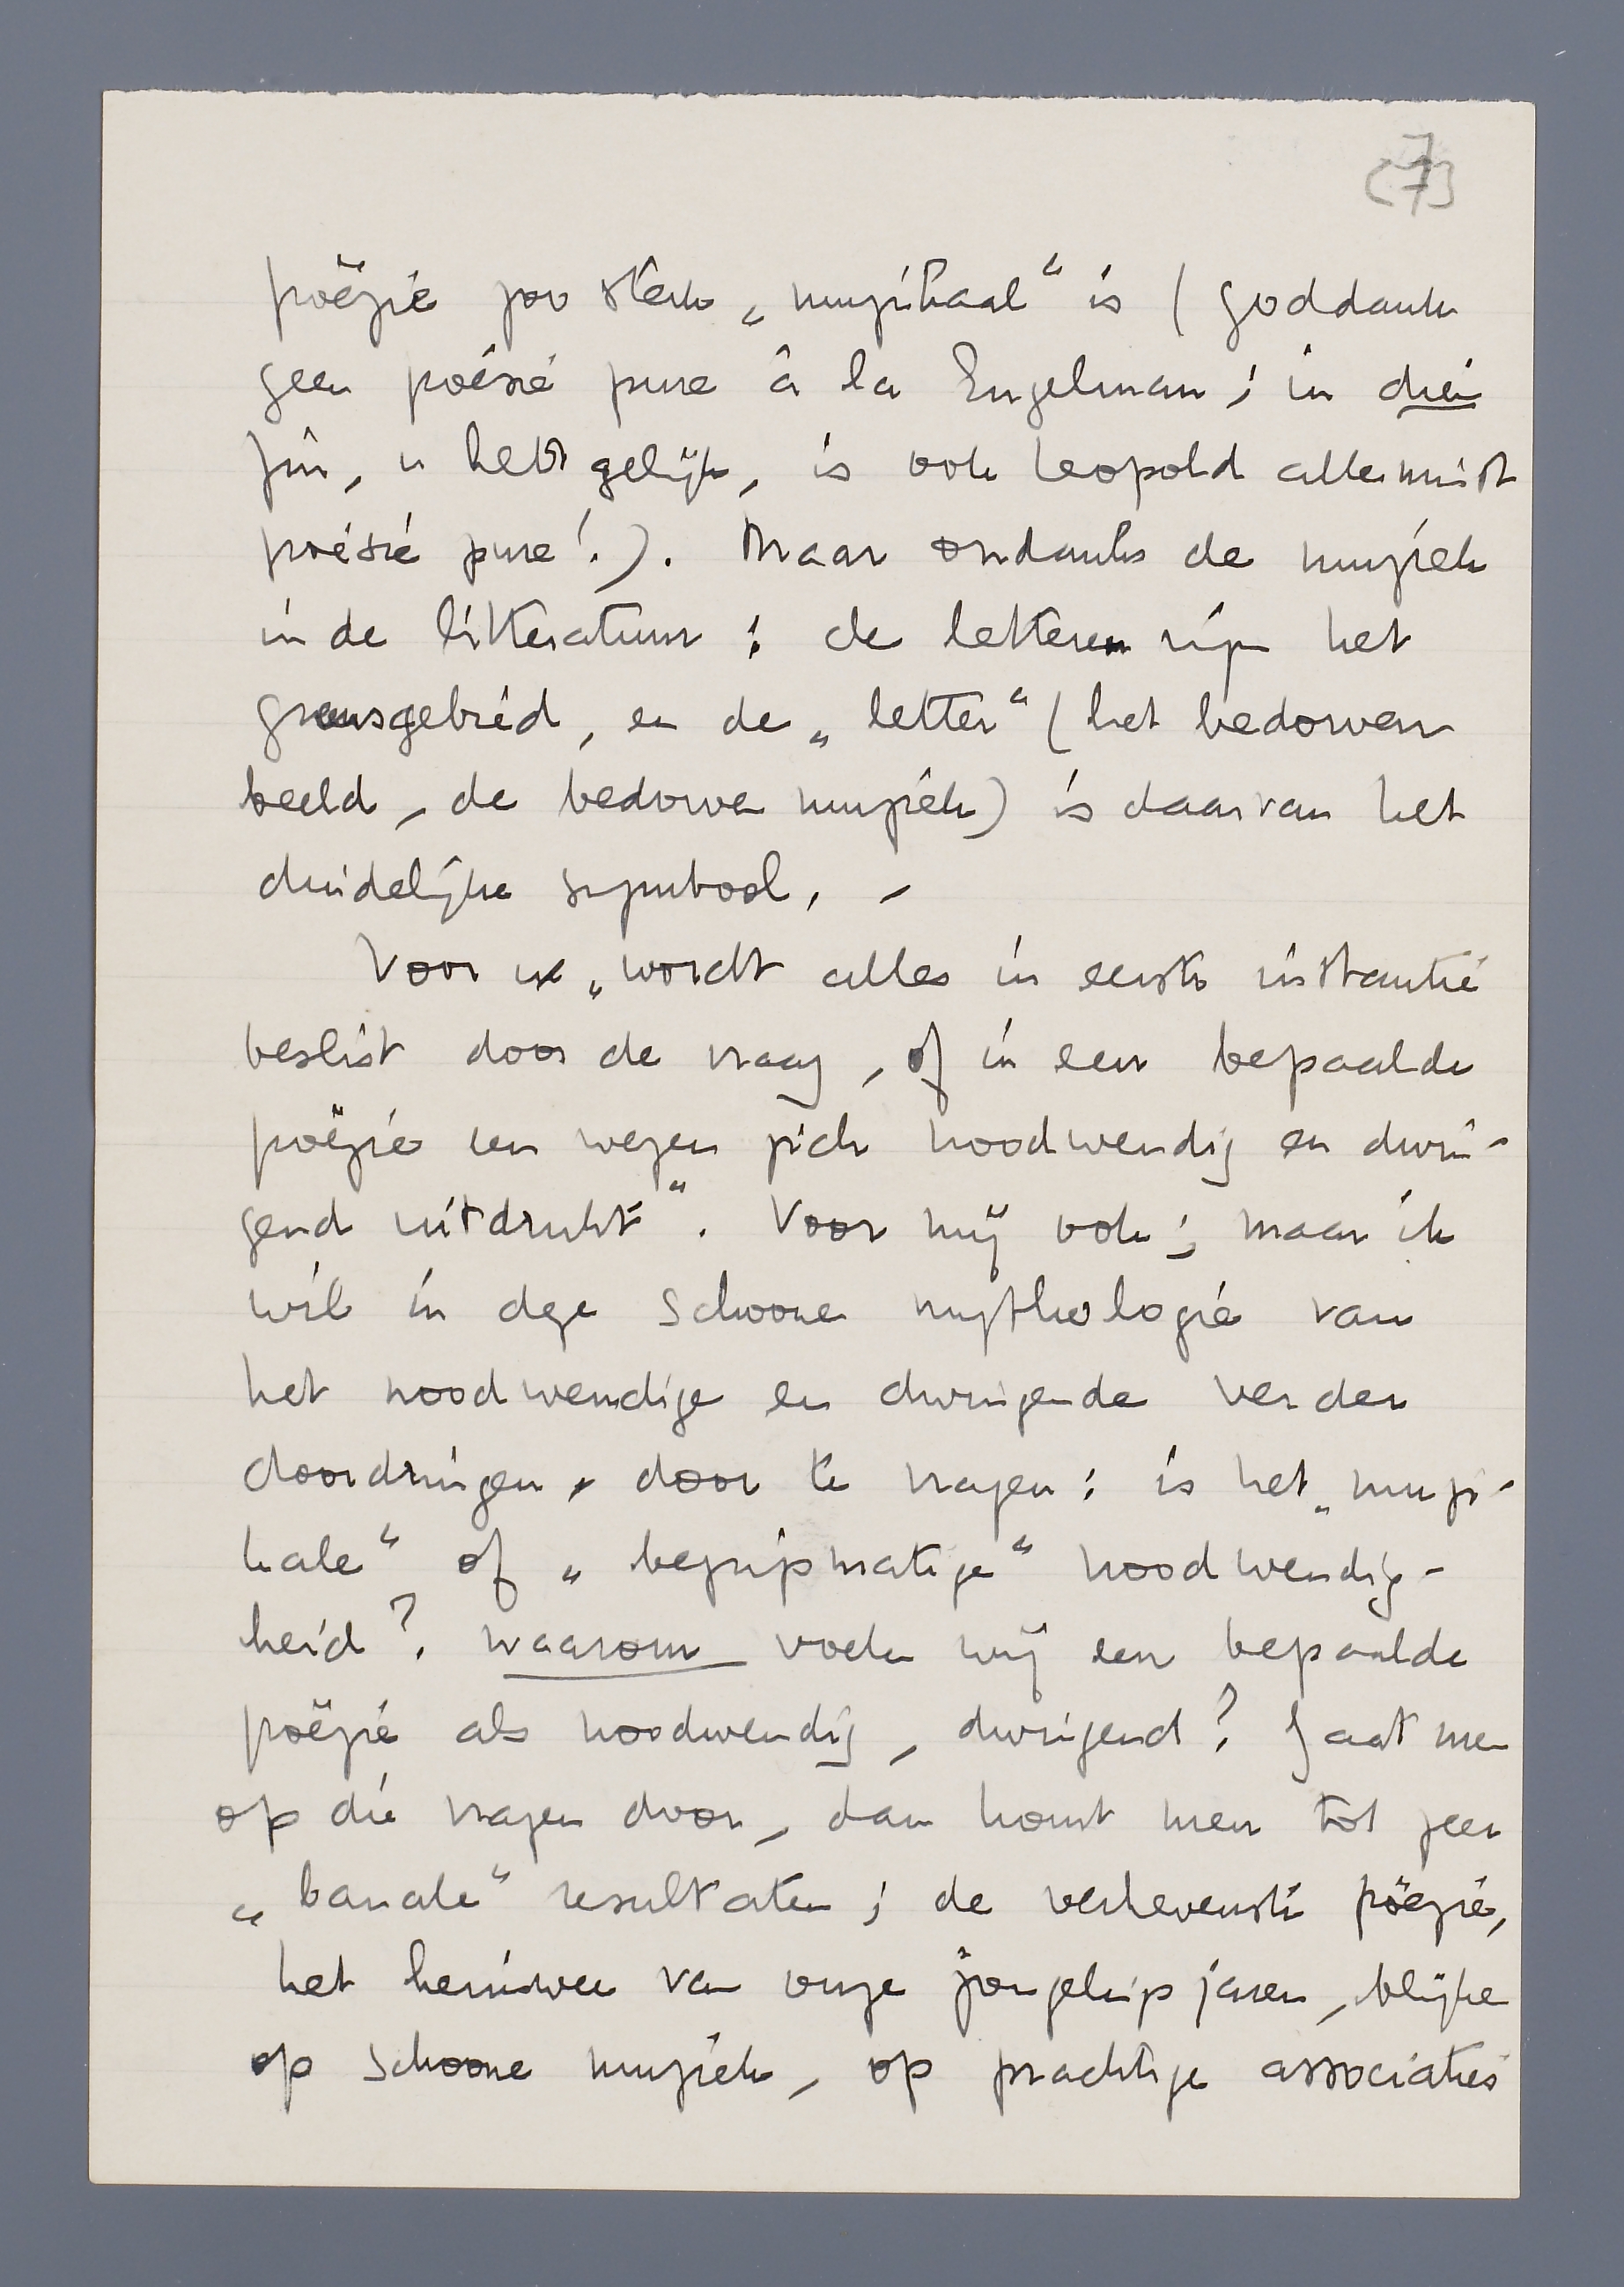 (7)
poëzie zoo sterk „muzikaal" is (goddank
geen poésie pure à la Engelman; in dien
zin, u hebt gelijk, is ook Leopold allerminst
poésie pure!). Maar ondanks de muziek
in de litteratuur: de letteren zijn het
grensgebied, en de „letter" (het bedorven
beeld, de bedorven muziek) is daarvan het
duidelijke symbool. –
Voor u „wordt alles in eerste instantie
beslist door de vraag, of in een bepaalde
poëzie een wezen zich noodwendig en dwin-
gend uitdrukt". Voor mij ook; maar ik
wil in deze schoone mythologie van
het noodwendige en dwingende verder
doordringen, door te vragen: is het „muzi-
kale" of „begripmatige" noodwendig-
heid? Waarom voelen wij een bepaalde
poëzie als noodwendig, dwingend? Gaat men
op die vragen door, dan komt men tot zeer
„banale" resultaten; de verhevenste poëzie,
het heimwee van onze jongelingsjaren, blijken
op schoone muziek, op prachtige associaties